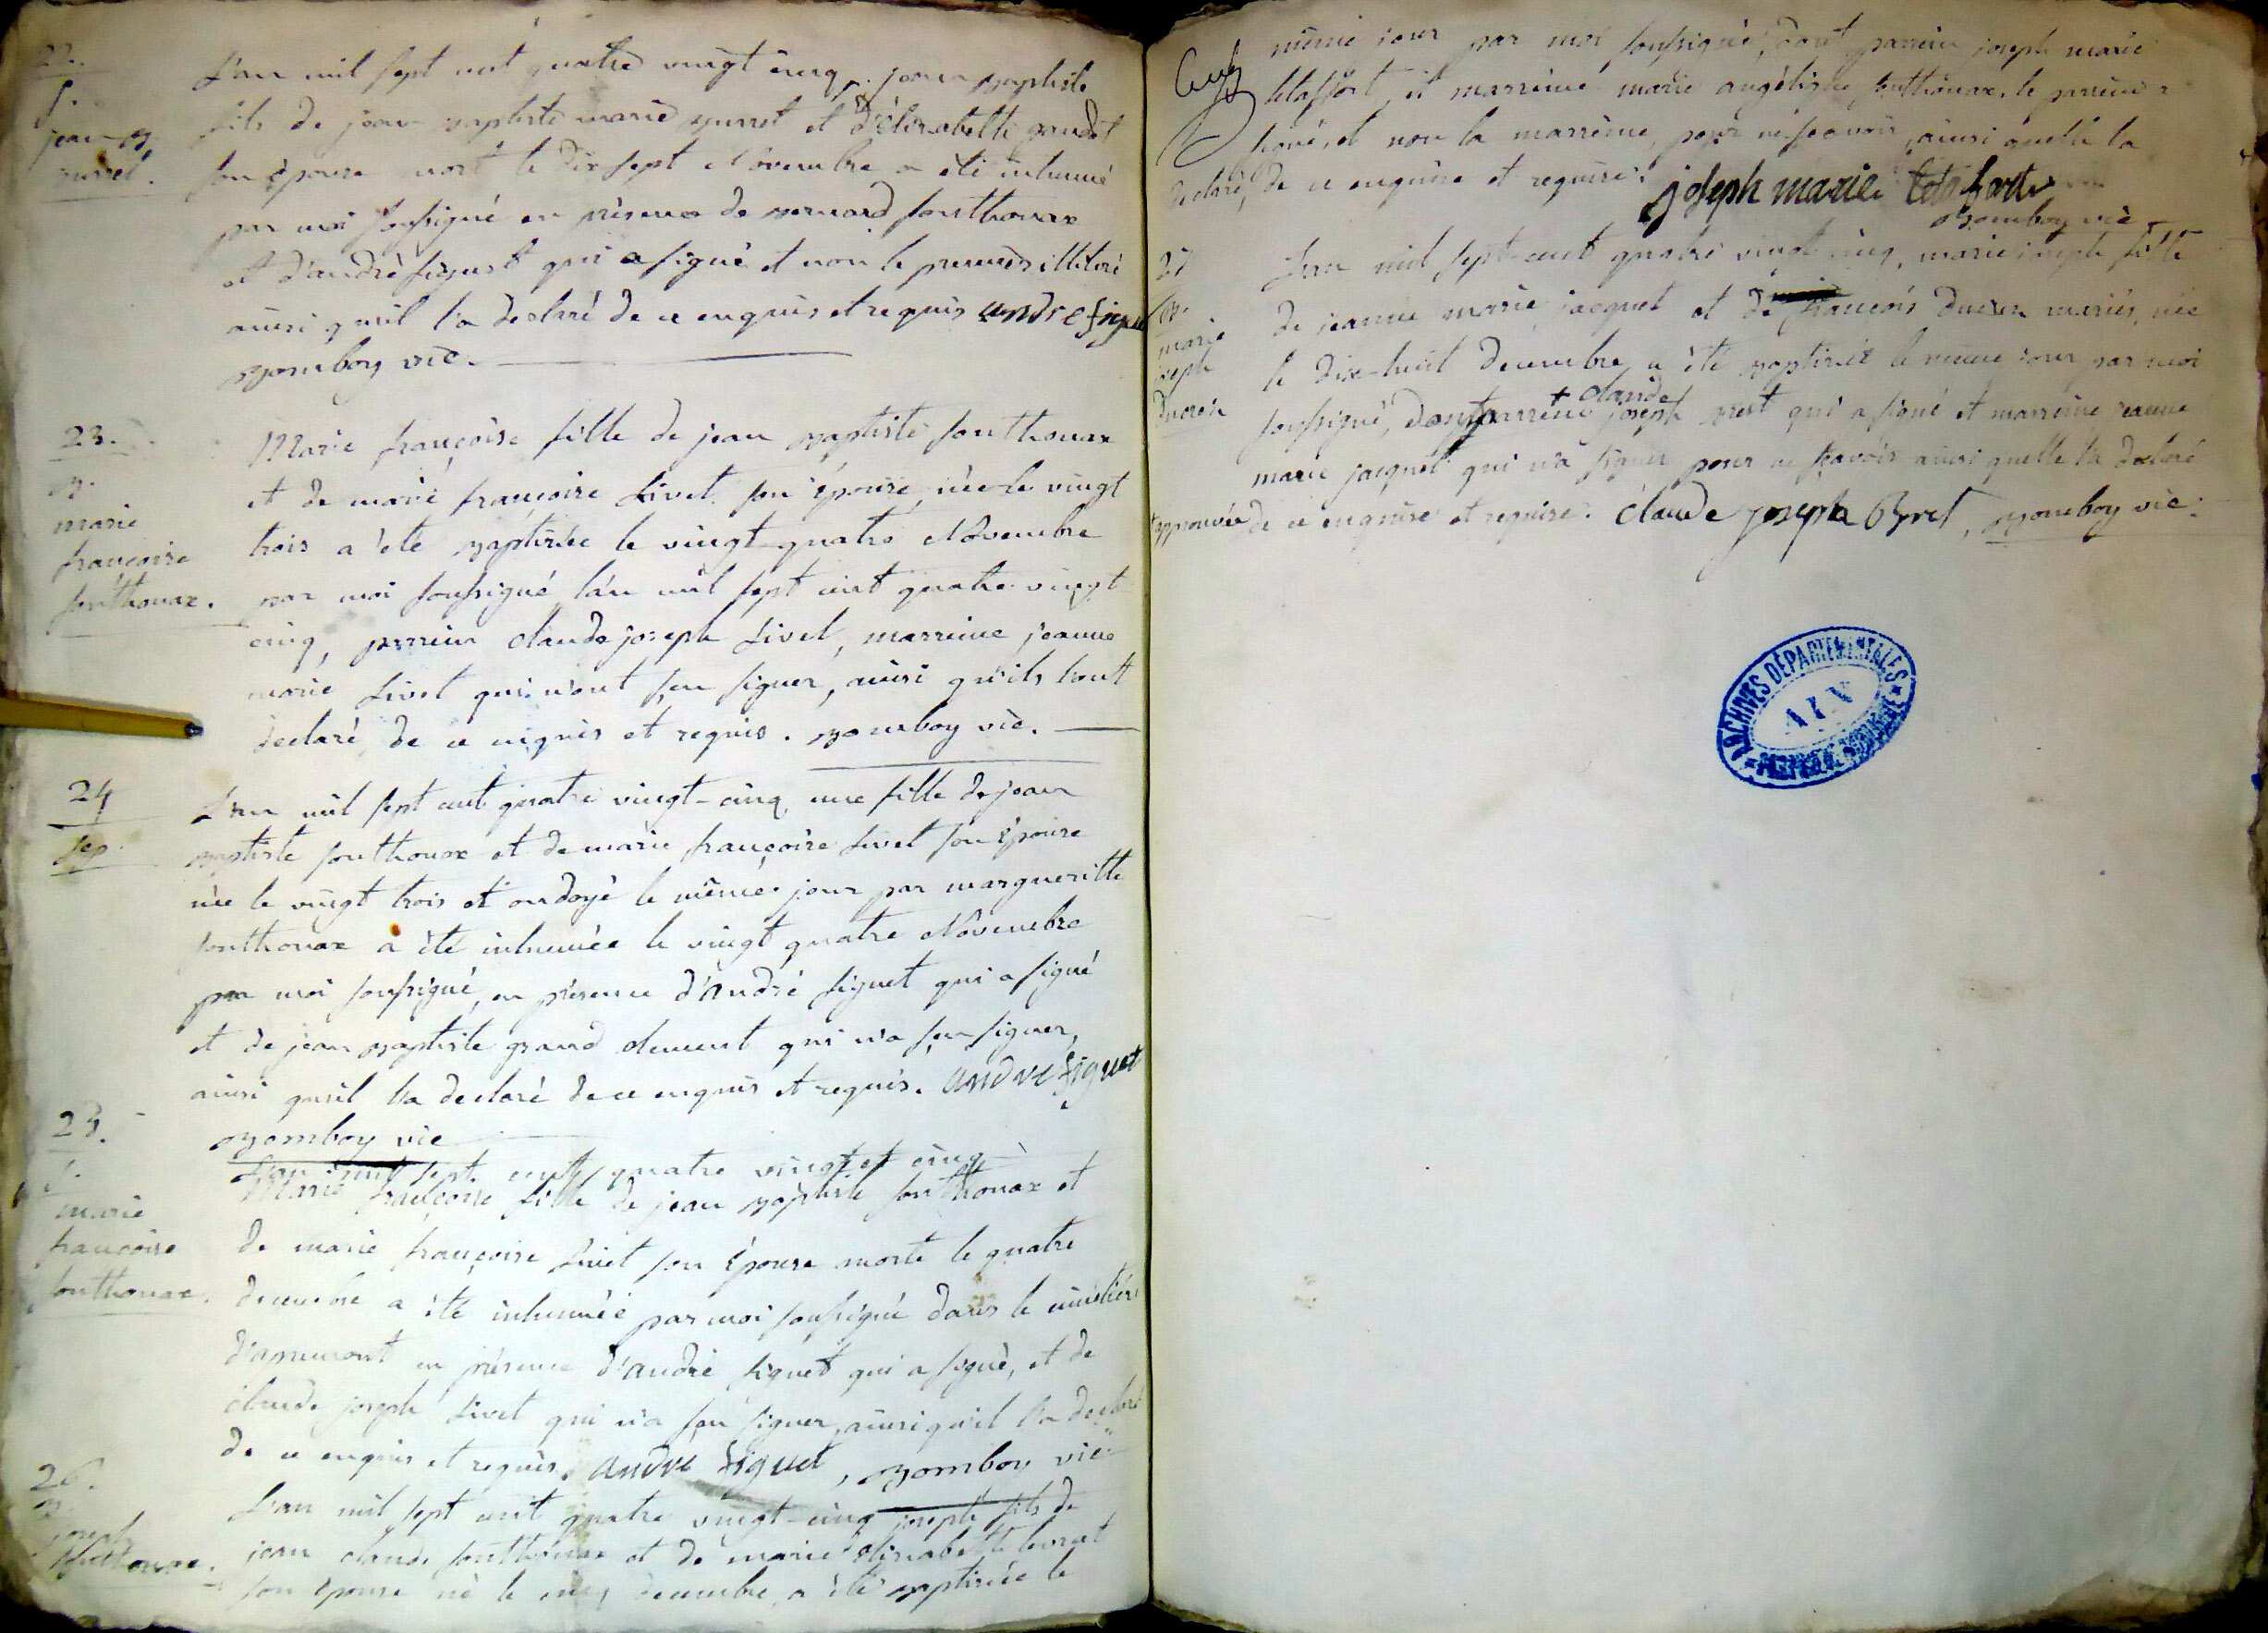 22.
S.
jean B.
L'an mil sept cent quatre vingt cinq, jean Baptiste
fils de jean Baptiste marie et d'Elizabette
son Epouse mort le dix sept Novembre a été inhumé
par moi soussigné en présence de Bernard Sonthonax
et d'andré figuet qui a signé et non le premier illiteré
ainsi quil l'a declaré de ce enquis et requis andre figuet
Bomboy vic.
23.
B.
marie
francoise
sonthonax.
Marie françoise fille de jean Baptiste sonthonax
et de marie françoise Livet son Epouse née le vingt
trois a été Baptisée le vingt-quatre Novembre
par moi soussigné l'an mil sept cent quatre vingt
cinq, parrein claude joseph Livet, marreine jeanne
marie Livet qui n'ont sçu signer, ainsi qu'ils l'ont
declaré de ce enquis et requis. Bomboy vic.
24
sep.
L'an mil sept cent quatre vingt-cinq, une fille de jean
Baptiste sonthonax et de marie françoise Livet son Epouse
née le vingt trois et ondoyé le même jour par margueritte
sonthonax a été inhumée le vingt quatre Novembre
par moi soussigné, en présence d'André figuet qui a signé
et de jean Baptiste grand clement qui n'a sçu signer,
ainsi quil l'a declaré de ce enquis et requis. andre figuet
Bomboy vic
25.
S.
marie
francoise
sonthonax.
L'an mil sept cent quatre vingt et cinq
Marie françoise fille de jean Baptiste sonthonax et
de marie françoise Livet son Epouse morte le quatre
decembre a été inhumée par moi soussigné dans le cimetière
d'apremont en présence d'andré figuet qui a signé, et de
claude joseph Livet qui n'a sçu signer, ainsi qu'il l'a declaré
de ce enquis et requis. andre figuet, Bomboy vic
26.
B.
joseph
sonthonax.
L'an mil sept cent quatre vingt-cinq joseph fils de
jean claude sonthonax et de marie Elisabette
son Epouse né le cinq decembre, a été Baptisée le
même jour par moi soussigné, dont parrein joseph marie
et marreine marie angélique sonthonax, le parrein a
signé, et non la marreine, pour ne sçavoir, ainsi quelle la
declaré, de ce enquise et requise. joseph marie
Bomboy vic
27
B.
marie
joseph
L'an mil sept-cent quatre vingt cinq, marie joseph fille
de jeanne marie jacquet et de françois mariés, née
le dix-huit decembre, a été Baptisée le même jour par moi
+ claude
soussigné, dont parrein joseph Bret qui a signé et marreine jeanne
marie jacquet qui n'a signer pour ne sçavoir ainsi quelle l'a declaré
+ approuvée de ce enquise et requise. claude joseph Bret, Bomboy vic.
ARCHIVES DÉPARTEMENTALES
AIN